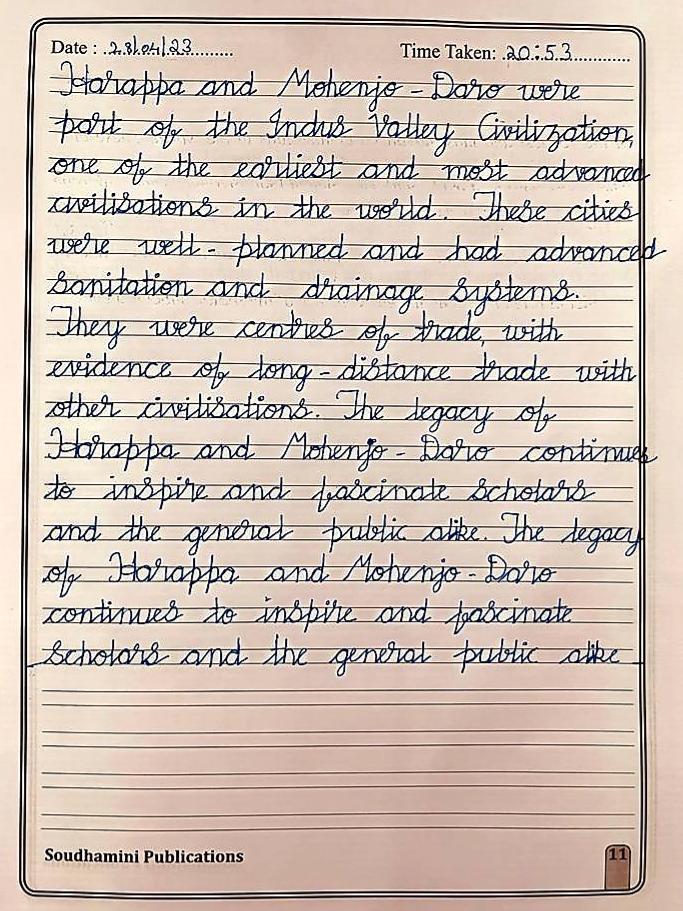 Date : 28/04/23
Time Taken: 20:53
Harappa and Mohenjo - Daro were
part of the Indus Valley Civilization,
one of the earliest and most advanced
civilisations in the world. These cities
were well - planned and had advanced
sanitation and drainage systems.
They were centres of trade, with
evidence of long - distance trade with
other civilisations. The legacy of
Harappa and Mohenjo - Daro continues
to inspire and fascinate scholars
and the general public alike. The legacy
of Harappa and Mohenjo - Daro
continues to inspire and fascinate
scholars and the general public alike
Soudhamini Publications
11